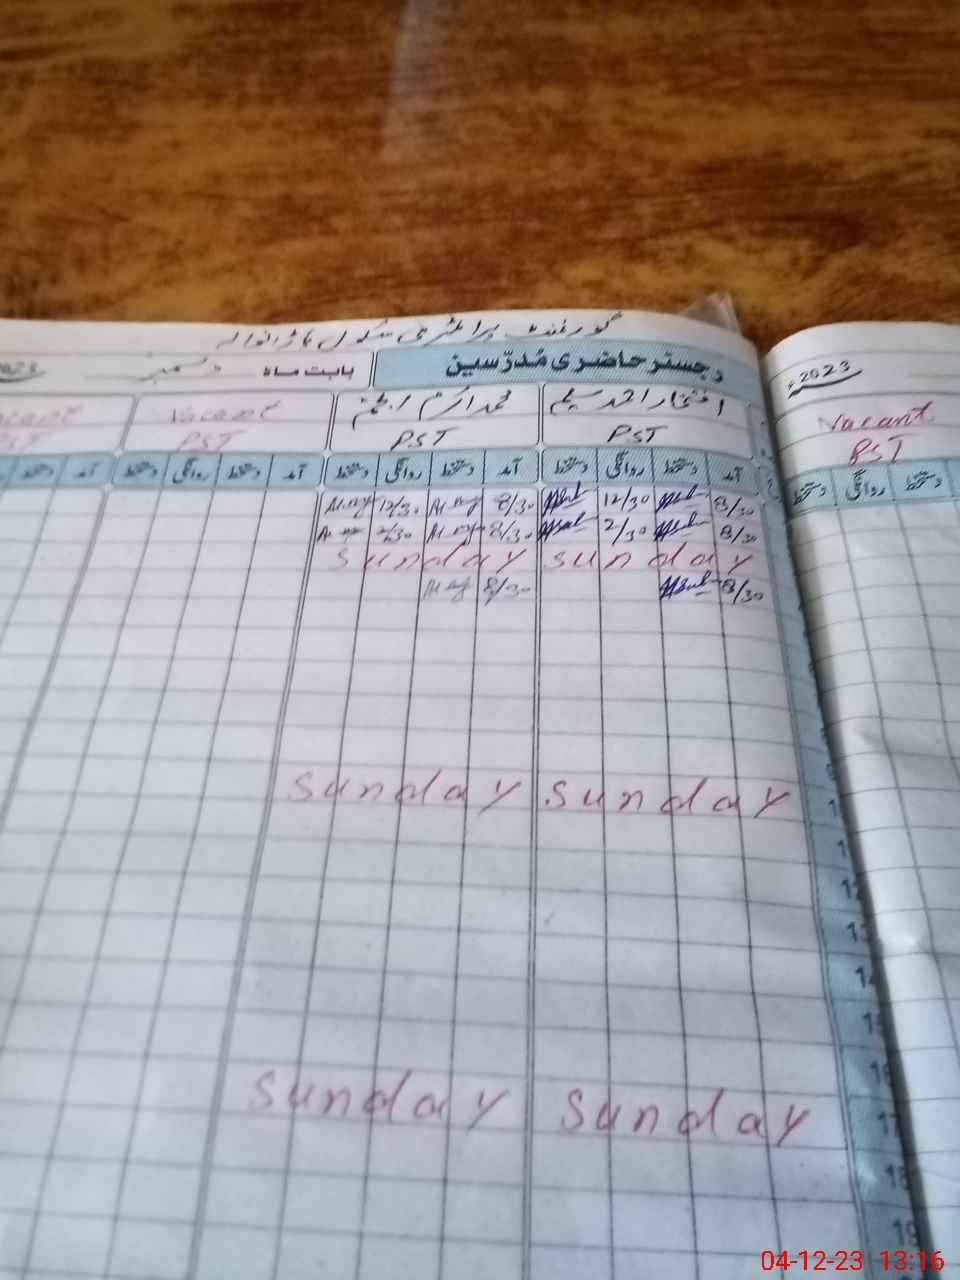 گورنمنٹ پرائمری سکول
رجسٹر حاضری مُدرّسین بابت ماہ دسمبر 2023
2023ء
افتخار احمد سلیم محمد اکرم Vacant
PST PST PST PST
Vacant
PST
آمد دستخط روانگی دستخط آمد دستخط روانگی دستخط آمد دستخط روانگی دستخط آمد دستخط
دستخط روانگی دستخط
8/30 12/30 8/30 12/30
8/30 2/30 8/30 2/30
Sunday Sunday
8/30 8/30
Sunday Sunday
12
13
14
15
16
Sunday Sunday
17
18
19
04-12-23 13:16